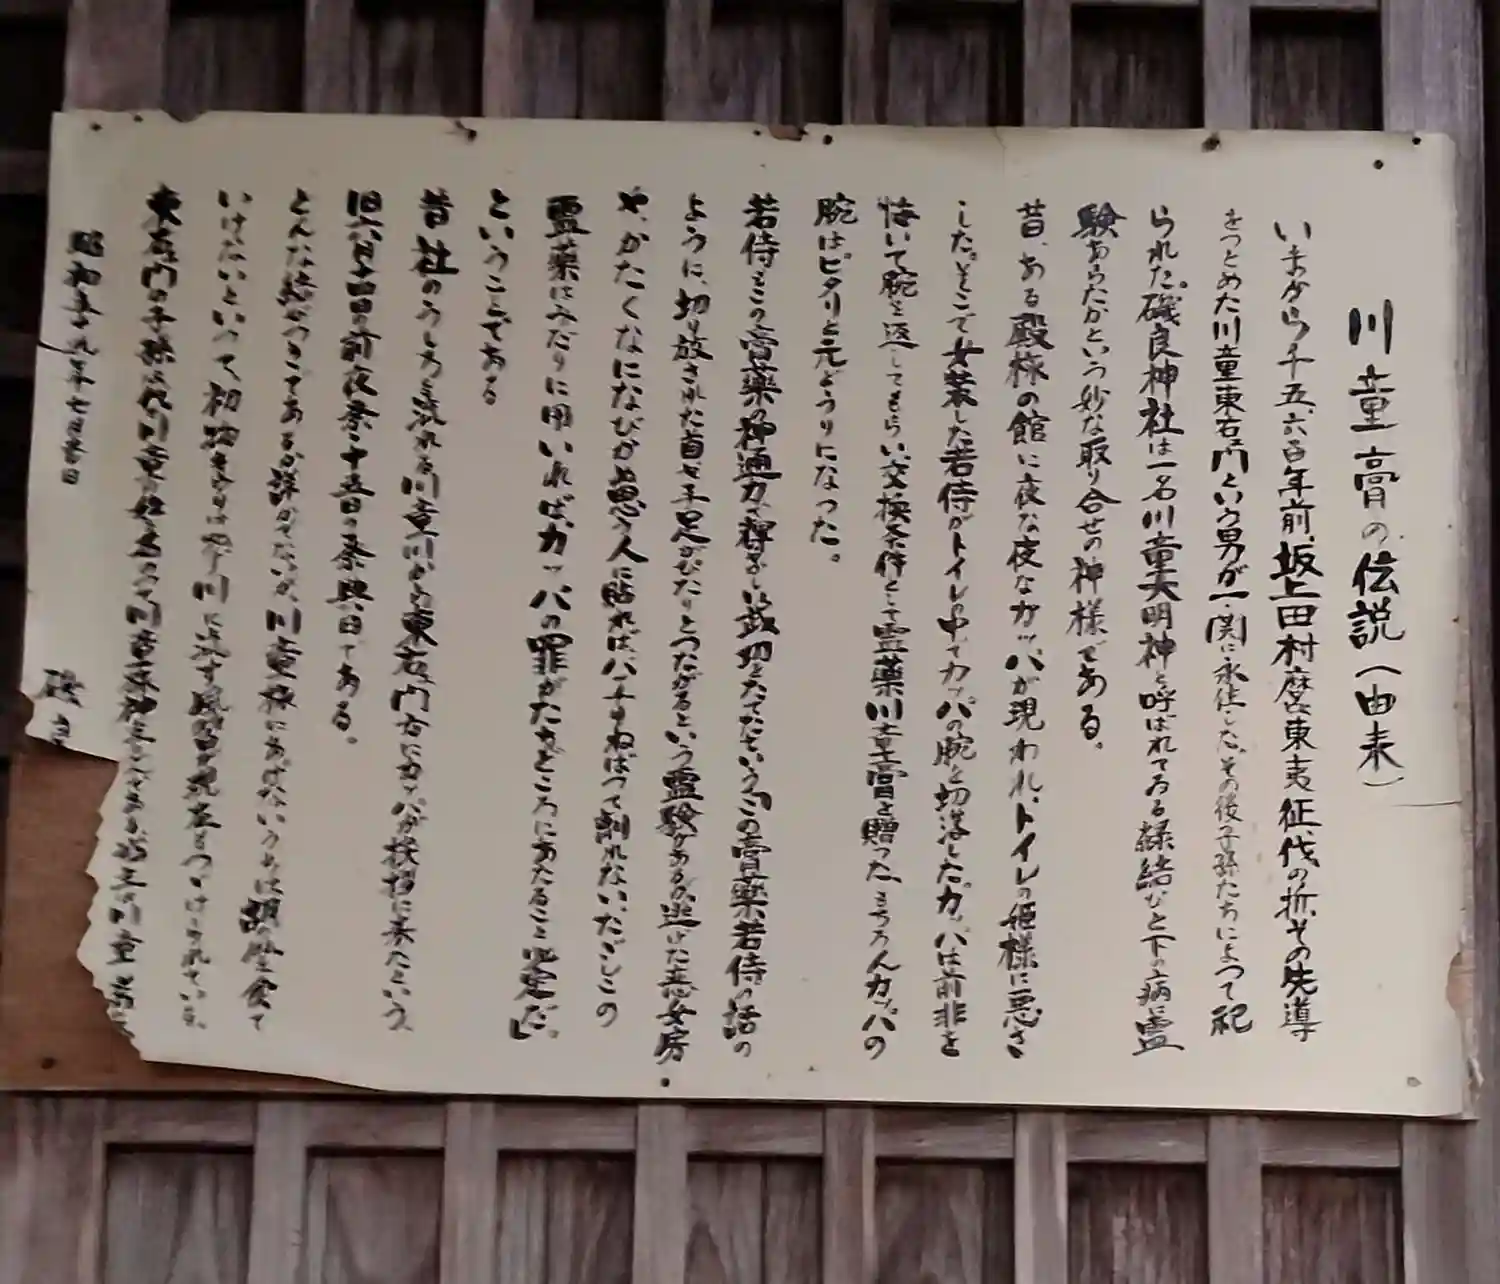 川童膏の伝説(由来)
いまから千五、六百年前、坂上田村麿、東夷征伐の折その先導
をつとめた川童東右ェ門という男が一ノ関に永住した。その後子孫たちによって祀
られた。磯良神社は一名川童大明神と呼ばれている縁結びと下の病霊
験あらたかという妙な取り合せの神様である。
昔、ある殿様の館に夜な夜なカッパが現われ、トイレの姫様に悪さ
した。そこで女装した若侍がトイレの中でカッパの腕を切落した。カッパは前非を
悔いて腕を返してもらい交換条件として霊薬川童膏を贈った、もちろんカッパの
腕はピタリと元どうりになった。
若侍はこの膏薬の神通力で輝かしい武功をたてたという。「この膏薬、若侍の話の
ように、切り放された首や手足がぴたりとつながるという霊験があるが逃げた恋女房
や、かたくなになびかぬ思う人に貼れば、バッチリねばって離れない、ただしこの
霊薬はみだりに用いれば、カッパの罪がたちどころにあたること必定だ。」
ということである
昔 社のうしろを流れる川童川から東右ェ門方にカッパが挨拶に来たという。
旧六月十四日の前夜祭・十五日の祭典日である。
どんな縁がつきであるか詳かでないが、川童様にあげないうちは胡瓜食て
いけないといって、初物を川に流す風習が現在もつづけられている。
東右ェ門の子孫は代々川童を姓を名のって川童
昭和五十九年七月吉日
磯良